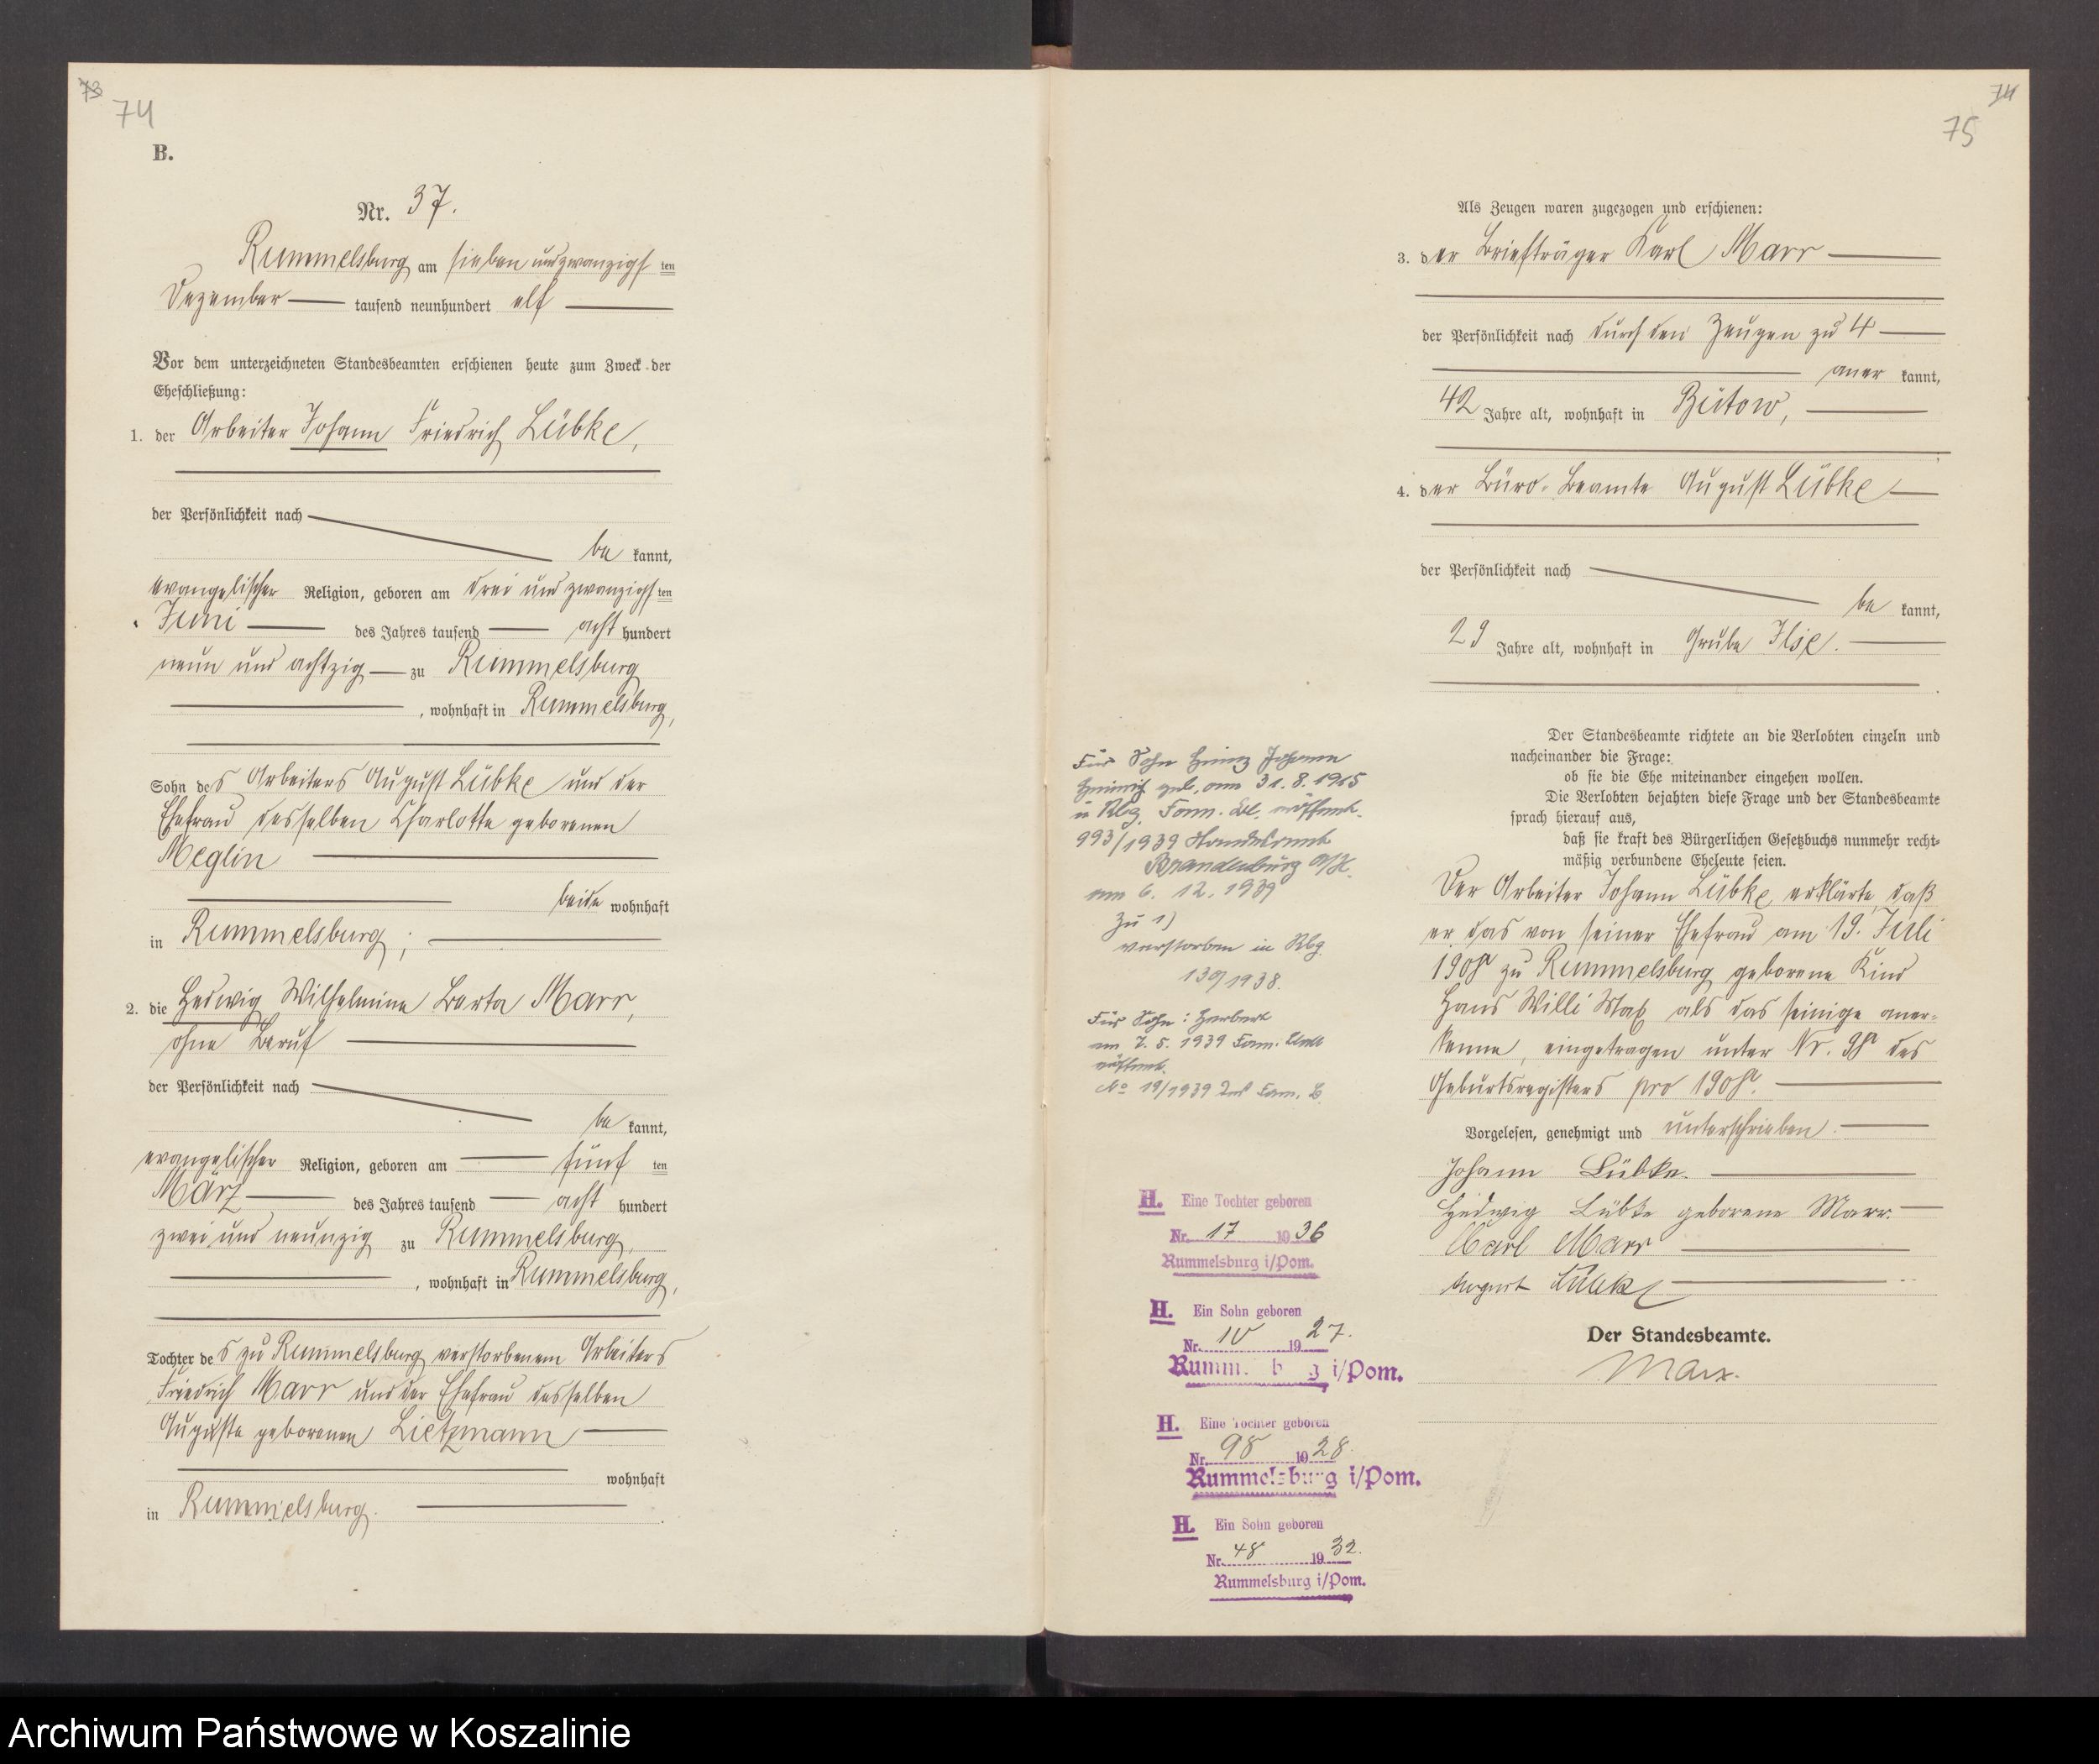 73
74
B.
Nr. 37.
Rummelsburg am sieben und zwanzigsten
Dezember tausend neunhundert elf
Vor dem unterzeichneten Standesbeamten erschienen heute zum Zweck der
Eheschließung:
1. der Arbeiter Johann Friedrich Lübke,
der Persönlichkeit nach
be kannt,
evangelischer Religion, geboren am drei und zwanzigsten
Juni des Jahres tausend acht hundert
neun und achtzig zu Rummelsburg
, wohnhaft in Rummelsburg,
Sohn des Arbeiters August Lübke und der
Ehefrau desselben Charlotte geborenen
Meglin
beide wohnhaft
in Rummelsburg;
2. die Hedwig Wilhelmine Berta Marr,
ohne Beruf
der Persönlichkeit nach
be kannt,
evangelischer Religion, geboren am fünf ten
März des Jahres tausend acht hundert
zwei und neunzig zu Rummelsburg,
, wohnhaft in Rummelsburg,
Tochter des zu Rummelsburg verstorbenem Arbeiters
Friedrich Marr und der Ehefrau desselben
Auguste geborenen Lietzmann
wohnhaft
in Rummelsburg.
74
75
Als Zeugen waren zugezogen und erschienen:
3. der Briefträger Karl Marr
der Persönlichkeit nach durch den Zeugen zu 4
aner kannt,
42 Jahre alt, wohnhaft in Bütow,
4. der Büro-Beamte August Lübke
der Persönlichkeit nach
be kannt,
29 Jahre alt, wohnhaft in Grube Ilse.
Der Standesbeamte richtete an die Verlobten einzeln und
nacheinander die Frage:
ob sie die Ehe miteinander eingehen wollen.
Die Verlobten bejahten diese Frage und der Standesbeamte
sprach hierauf aus,
daß sie kraft des Bürgerlichen Gesetzbuchs nunmehr recht-
mäßig verbundene Eheleute seien.
Der Arbeiter Johann Lübke erklärte, daß
er das von seiner Ehefrau am 19. Juli
zu Rummelsburg geborene Kind
Hans Willi Max als das seinige aner-
kenne, eingetragen unter Nr. des
Geburtsregisters pro
Vorgelesen, genehmigt und unterschrieben.
Johann Lübke.
Hedwig Lübke geborene Marr.
Karl Marr
August Lübke
Der Standesbeamte.
Für Sohn Heinz Johann
Heinrich geb. am 31. 8. 1915
in Rbg. Fam. eröffnet.
993/1939 Standesamt
Brandenburg a/H.
am 6. 12. 1939
Zu 1)
verstorben in Rbg.
139/1938.
Für Sohn: Herbert
am 7. 5. 1939 Fam.
eröffnet.
No 19/1939 Fam. B.
H. Eine Tochter geboren
Nr. 17 1936
Rummelsburg i/Pom.
H. Ein Sohn geboren
Nr. 10 1927.
Rummelsburg i/Pom.
H. Eine Tochter geboren
Nr. 98 1928.
Rummelsburg i/Pom.
H. Ein Sohn geboren
Nr. 48 1932.
Rummelsburg i/Pom.
Archiwum Państwowe w Koszalinie